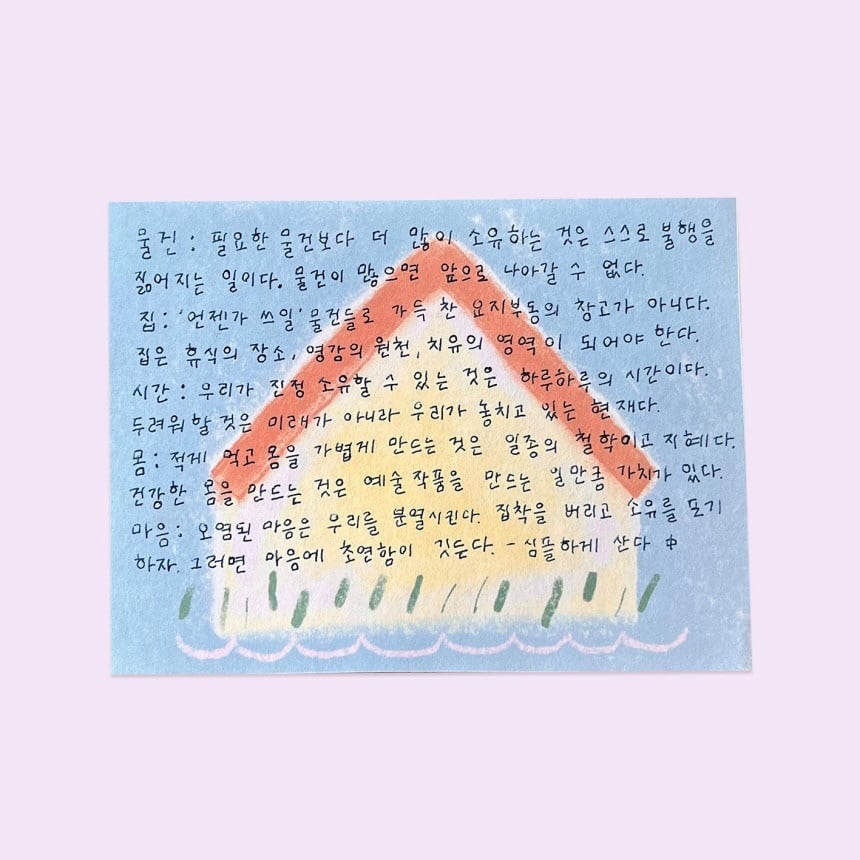 물건 : 필요한 물건보다 더 많이 소유하는 것은 스스로 불행을
짊어지는 일이다. 물건이 많으면 앞으로 나아갈 수 없다.
집 : '언젠가 쓰일' 물건들로 가득 찬 요지부동의 창고가 아니다.
집은 휴식의 장소, 영감의 원천, 치유의 영역이 되어야 한다.
시간 : 우리가 진정 소유할 수 있는 것은 하루하루의 시간이다.
두려워할 것은 미래가 아니라 우리가 놓치고 있는 현재다.
몸 : 적게 먹고 몸을 가볍게 만드는 것은 일종의 철학이고 지혜다.
건강한 몸을 만드는 것은 예술작품을 만드는 일만큼 가치가 있다.
마음 : 오염된 마음은 우리를 분열시킨다. 집착을 버리고 소유를 포기
하자. 그러면 마음에 초연함이 깃든다. - 심플하게 산다 中